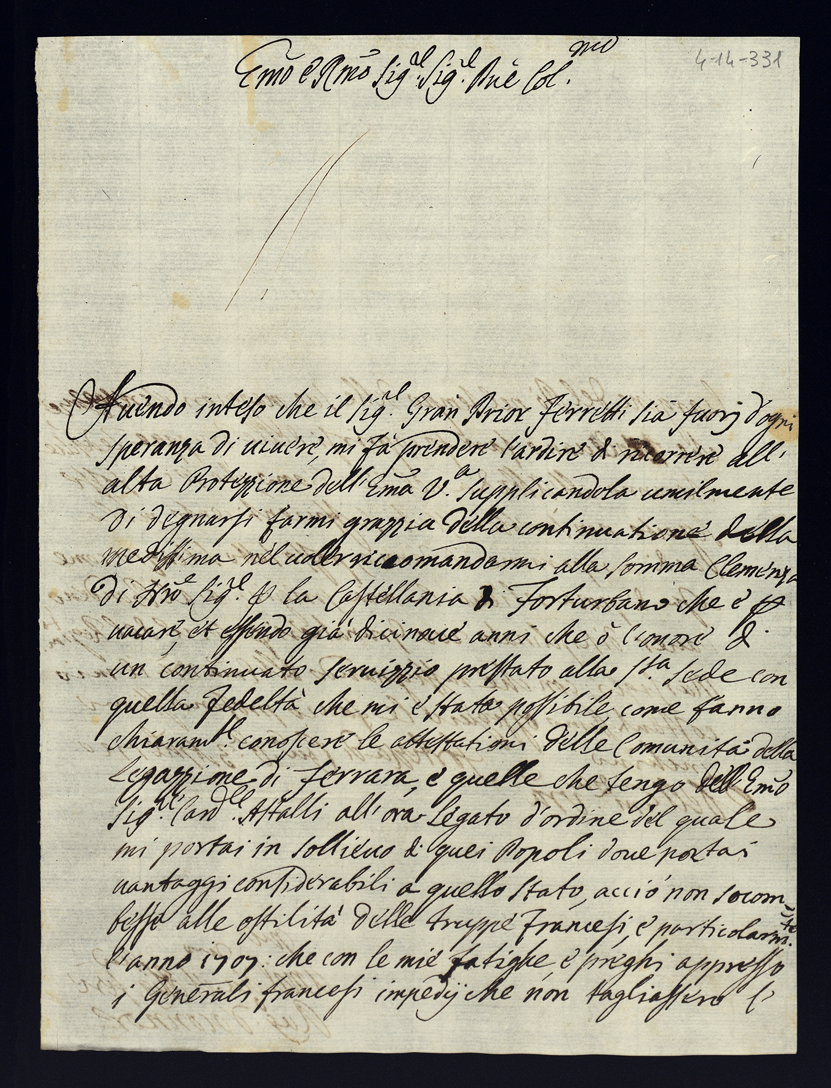 4-14-331
Em̃o e Rm̃o Sig.re Sig.re Pñe Col.mo
Auendo inteso che il Sig.r Gran Prior Ferretti sia fuorj d'ogni
speranza di uiuere, mi fà prendere l'ardire di ricorrere all'
alta Protezzione dell'Em̃a V.a supplicandola umilmente
di degnarsi farmi grazzia della continuatione della
medessima nel uolersi racomandarmi alla somma Clemenza
di Nr̃o Sig.re ꝑ la Castellania di Forturbano che è ꝑ
uacare, et essendo già dicinoue anni che ò l'onore di
un continuato seruizzio prestato alla S.ta Sede con
quella fedeltà che mi è stata possibile, come fanno
chiaram.te conoscere le attestationi delle Comunità della
Legazzione di Ferrara, e quelle che tengo dell'Em̃o
Sig.re Card.le Astalli all'ora Legato d'ordine del quale
mi portai in sollieuo di quei Popoli doue portai
uantaggi considerabili a quello Stato, acciò non socom-
besse alle ostilità delle truppe Francesi, e particolarm.te
l'anno 1707: che con le mie fatighe e preghi appresso
i Generali francesi impedij che non tagliassero l'